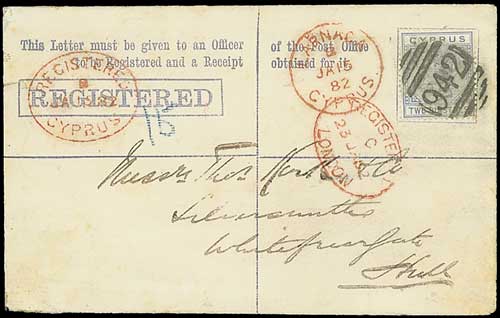 This Letter must be given to an Officer of the Post Office
to be Registered and a Receipt obtained for it.
REGISTERED
REGISTERED
JA 15 82
CYPRUS
LARNACA
JA 15
82
CYPRUS
CYPRUS
942
TWO
REGISTERED
C
23 JA 82
LONDON
Messrs Thos &Co
Silversmiths
Whitefriargate
Hull